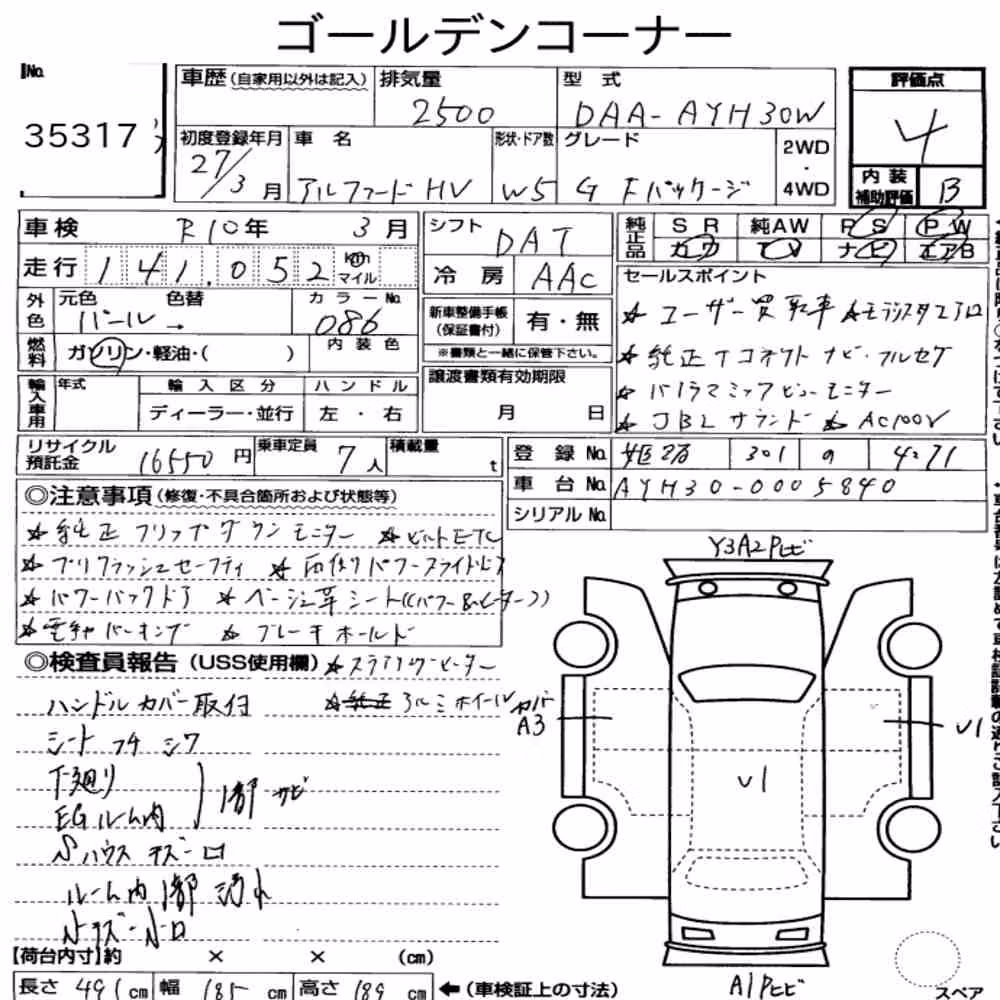 ゴールデンコーナー
No.
35317
車歴(自家用以外は記入)
排気量
2500
型式
DAA-AYH30W
評価点
4
初度登録年月
27/3月
車名
アルファードHV
形状・ドア数
W5
グレード
G Fパッケージ
2WD
・
4WD
内装
補助評価
B
車検
R10年 3月
シフト
DAT
純正品
SR 純AW PS PW
カワ TV ナビ エアB
走行
141,052
km
マイル
冷房
AAC
セールスポイント
☆ユーザー買取車 ☆モデリスタエアロ
☆純正Tコネクトナビ・フルセグ
☆パノラミックビューモニター
☆JBLサラウンド ☆AC100V
外色
元色 色替
パール→
カラーNo.
086
新車整備手帳
(保証書付)
有・無
※書類と一緒に保管下さい。
燃料
ガソリン・軽油・( )
内装色
輸入車用
年式
輸入区分
ディーラー・並行
ハンドル
左・右
譲渡書類有効期限
月 日
リサイクル
預託金
16550円
乗車定員
7人
積載量
t
登録No.
姫路 301 の 4271
車台No.
AYH30-0005840
シリアルNo.
◎注意事項(修復・不具合箇所および状態等)
☆純正フリップダウンモニター ☆ビルトETC
☆プリクラッシュセーフティ ☆両側パワースライドドア
☆パワーバックドア ☆ベージュ革シート((パワー&ヒーター))
☆電動パーキング ☆ブレーキホールド
◎検査員報告(USS使用欄)
☆ステアリングヒーター
☆純正アルミホイール
ハンドルカバー取付
カバー
シート コゲ シワ
下廻り
EGルーム内
1部 サビ
Sハウス キズ・凹
ルーム内1部汚れ
小キズ・小凹
【荷台内寸】約 × × (cm)
長さ 491cm 幅 185cm 高さ 189cm
←(車検証上の寸法)
Y3A2Pヒビ
A3
U1
U1
A1Pヒビ
スペア